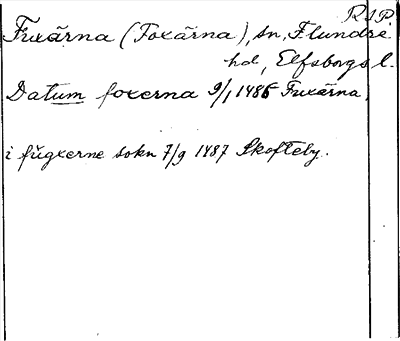 R 1 P.
Fuxärna (Foxärna), sn, Flundre
hd, Elfsborgs l.
Datum foxerna 9/1 1486 Fuxärna.
i fŭgxerne sokn 7/9 1487 Skofteby.